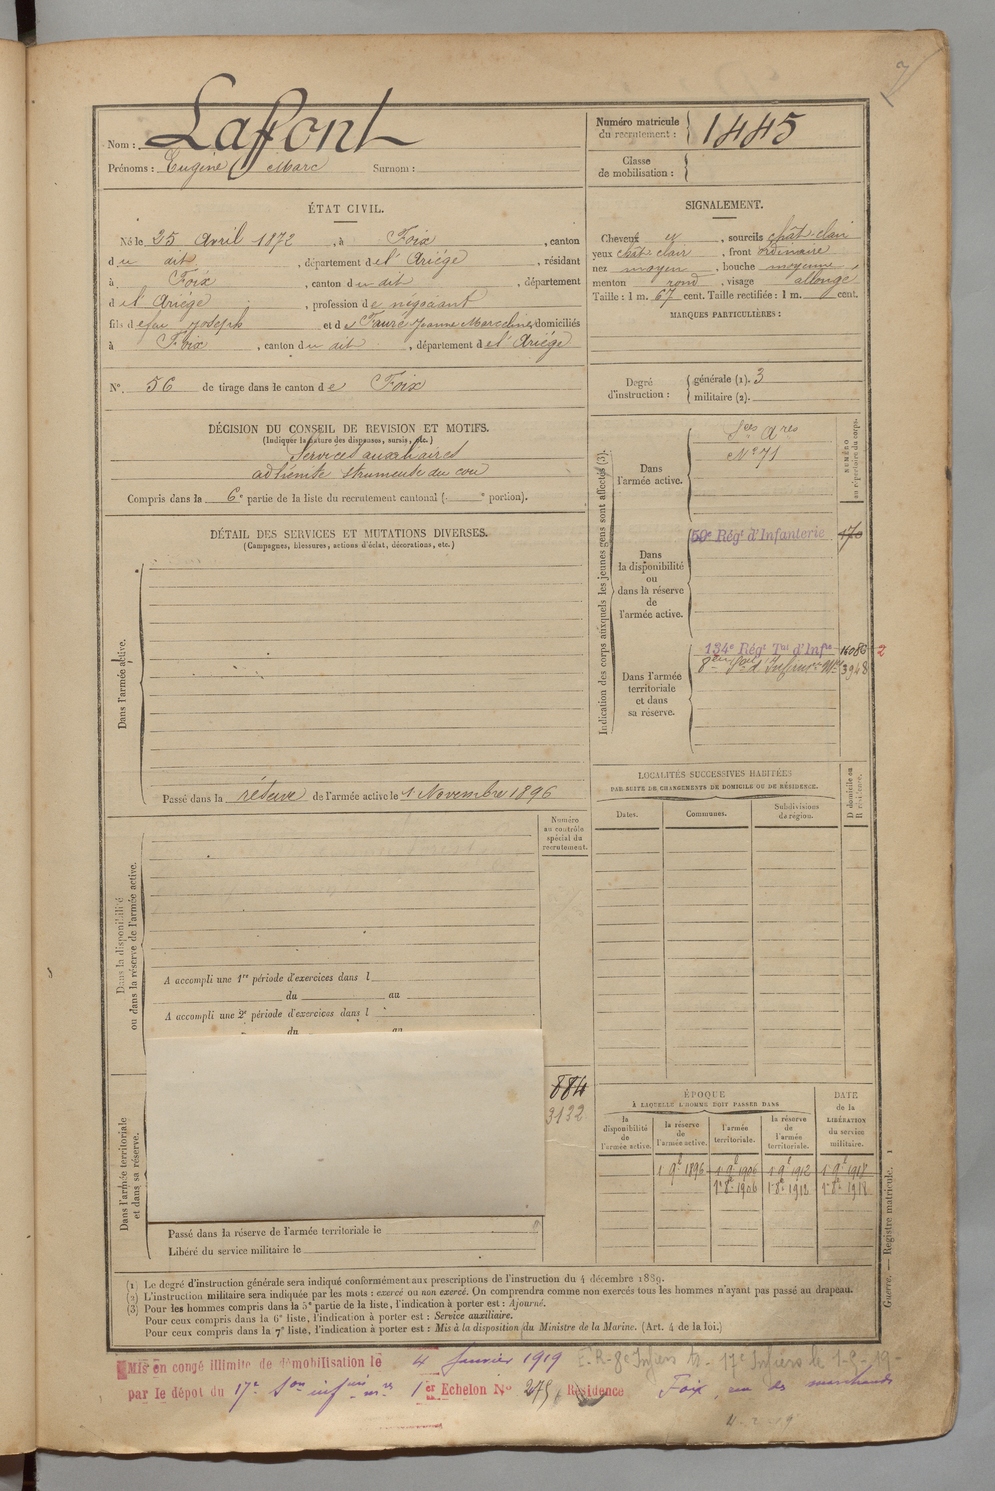 Nom : Laffont
Prénoms : Eugène Marc Surnom :
Numéro matricule du recrutement : 1445
Classe de mobilisation :
ÉTAT CIVIL.
Né le 25 Avril 1872, à Foix, canton
du dit, département de l'Ariège, résidant
à Foix, canton du dit, département
de l'Ariège, profession de négociant
fils de feu Joseph et de Faure Jeanne Marceline, domiciliés
à Foix, canton du dit, département de l'Ariège
N° 56 de tirage dans le canton de Foix
SIGNALEMENT.
Cheveux et, sourcils chât. clair
yeux chât. clair, front ordinaire
nez moyen, bouche moyenne
menton rond, visage allongé
Taille : 1 m. 67 cent. Taille rectifiée : 1 m. cent.
MARQUES PARTICULIÈRES :
Degré d'instruction : générale (1). 3
militaire (2).
DÉCISION DU CONSEIL DE REVISION ET MOTIFS.
(Indiquer la nature des dispenses, sursis, etc.)
Services auxiliaires
adhérente du cou
Compris dans la 6e partie de la liste du recrutement cantonal ( e portion).
DÉTAIL DES SERVICES ET MUTATIONS DIVERSES.
(Campagnes, blessures, actions d'éclat, décorations, etc.)
Dans l'armée active.
Passé dans la réserve de l'armée active le 1 Novembre 1896
Indication des corps auxquels les jeunes gens sont affectés (3).
NUMÉRO au répertoire du corps.
Dans l'armée active.
Ses Ares
N° 71
Dans la disponibilité ou dans la réserve de l'armée active.
59e Régt d'Infanterie 170
Dans l'armée territoriale et dans sa réserve.
134e Régt Tal d'Infie 16086 2
3948
LOCALITÉS SUCCESSIVES HABITÉES
PAR SUITE DE CHANGEMENTS DE DOMICILE OU DE RÉSIDENCE.
D domicile ou R résidence.
Dates. Communes. Subdivisions de région.
Numéro au contrôle spécial du recrutement.
Dans la disponibilité ou dans la réserve de l'armée active.
A accompli une 1re période d'exercices dans l
du au
A accompli une 2e période d'exercices dans l
du au
884
3132
Dans l'armée territoriale et dans sa réserve.
Passé dans la réserve de l'armée territoriale le
Libéré du service militaire le
ÉPOQUE
À LAQUELLE L'HOMME DOIT PASSER DANS
DATE de la LIBÉRATION du service militaire.
la disponibilité de l'armée active. la réserve de l'armée active. l'armée territoriale. la réserve de l'armée territoriale.
1 9e 1896 1 9e 1906 1 9e 1912 1 9e 1918
1 8e 1906 1 8e 1912 1 8e 1918
(1) Le degré d'instruction générale sera indiqué conformément aux prescriptions de l'instruction du 4 décembre 1889.
(2) L'instruction militaire sera indiquée par les mots : exercé ou non exercé. On comprendra comme non exercés tous les hommes n'ayant pas passé au drapeau.
(3) Pour les hommes compris dans la 5e partie de la liste, l'indication à porter est : Ajourné.
Pour ceux compris dans la 6e liste, l'indication à porter est : Service auxiliaire.
Pour ceux compris dans la 7e liste, l'indication à porter est : Mis à la disposition du Ministre de la Marine. (Art. 4 de la loi.)
Guerre. — Registre matricule. 1
Mis en congé illimité de démobilisation le 4 Janvier 1919
par le dépot du 17e Son 1er Echelon N° 275, Résidence Foix, rue des marchands